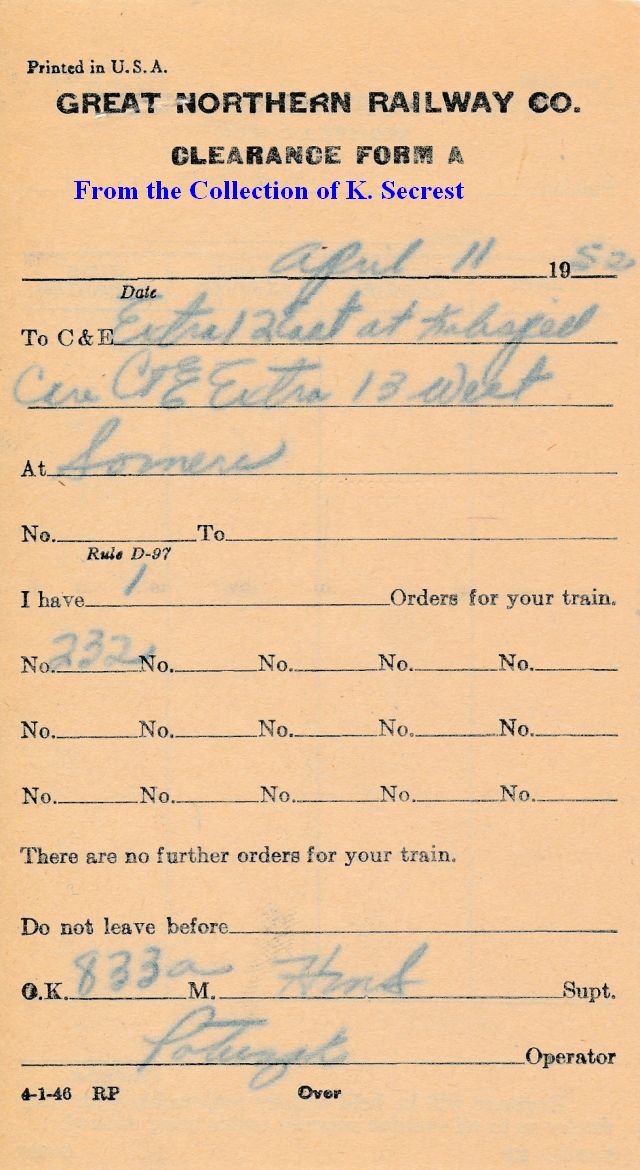 Printed in U.S.A.
GREAT NORTHERN RAILWAY CO.
CLEARANCE FORM A
From the Collection of K. Secrest
April 11 1952
Date
To C & E Extra 12 East at Kalispell
Care C&E Extra 13 West
At Somers
No. To
Rule D-97
I have 1 Orders for your train.
No. 232 No. No. No. No.
No. No. No. No. No.
No. No. No. No. No.
There are no further orders for your train.
Do not leave before
O.K. 833a M. HmS Supt.
Operator
4-1-46 RP Over